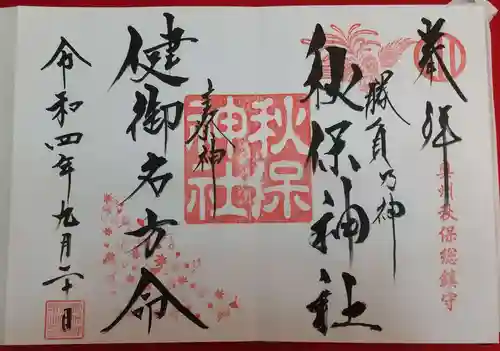 奉拝
奥州秋保総鎮守
勝負の神
秋保神社
秋保
神社
主祭神
健御名方命
令和四年九月二十日